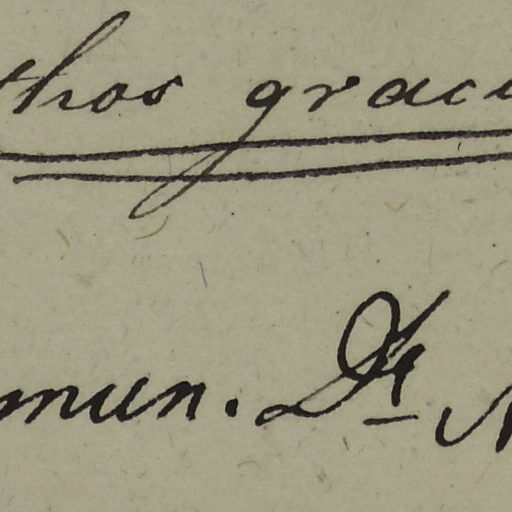 thos graci
mun. Dr. N